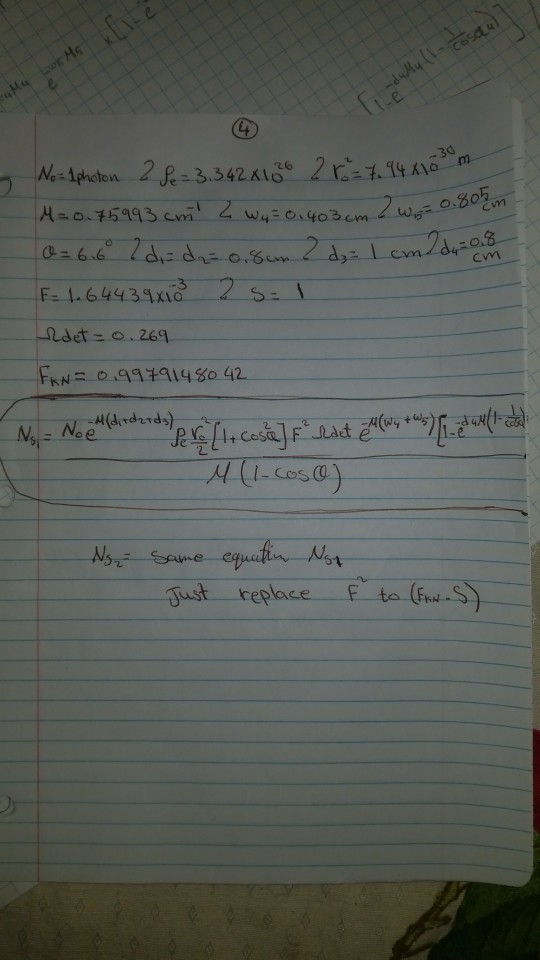 [1-e
e^-wMs
[1-e^-d4M4(1-1/cosα4)]
④
N₀=1photon 2 ρe=3.342×10^26 2 r₀²=7.94×10^-30 m
M=0.75993 cm^-1 2 w4=0.403cm 2 w5=0.805 cm
θ=6.6° 2 d1=d2=0.8cm 2 d3=1 cm 2 d4=0.8 cm
F=1.64439×10^-3 2 S=1
Ωdet=0.269
FKN=0.9979148042
Ns1= N₀e^-M(d1+d2+d3) ρe r₀²/2 [1+cos²θ] F² Ωdet e^-M(w4+w5) [1-e^-d4M(1-1/cosθ)
M(1-cosθ)
Ns2= same equatin Ns1
Just replace F² to (FKN.S)